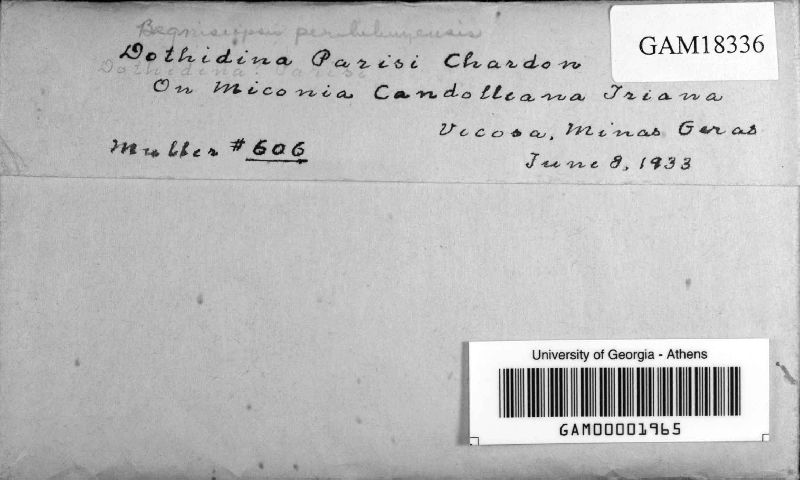 GAM18336
Dothidina Parisi Chardon
Dothidina Parisi
On Miconia Candolleana Triana
Vicosa, Minas Geras
Muller # 606
June 8, 1933
University of Georgia - Athens
GAM00001965